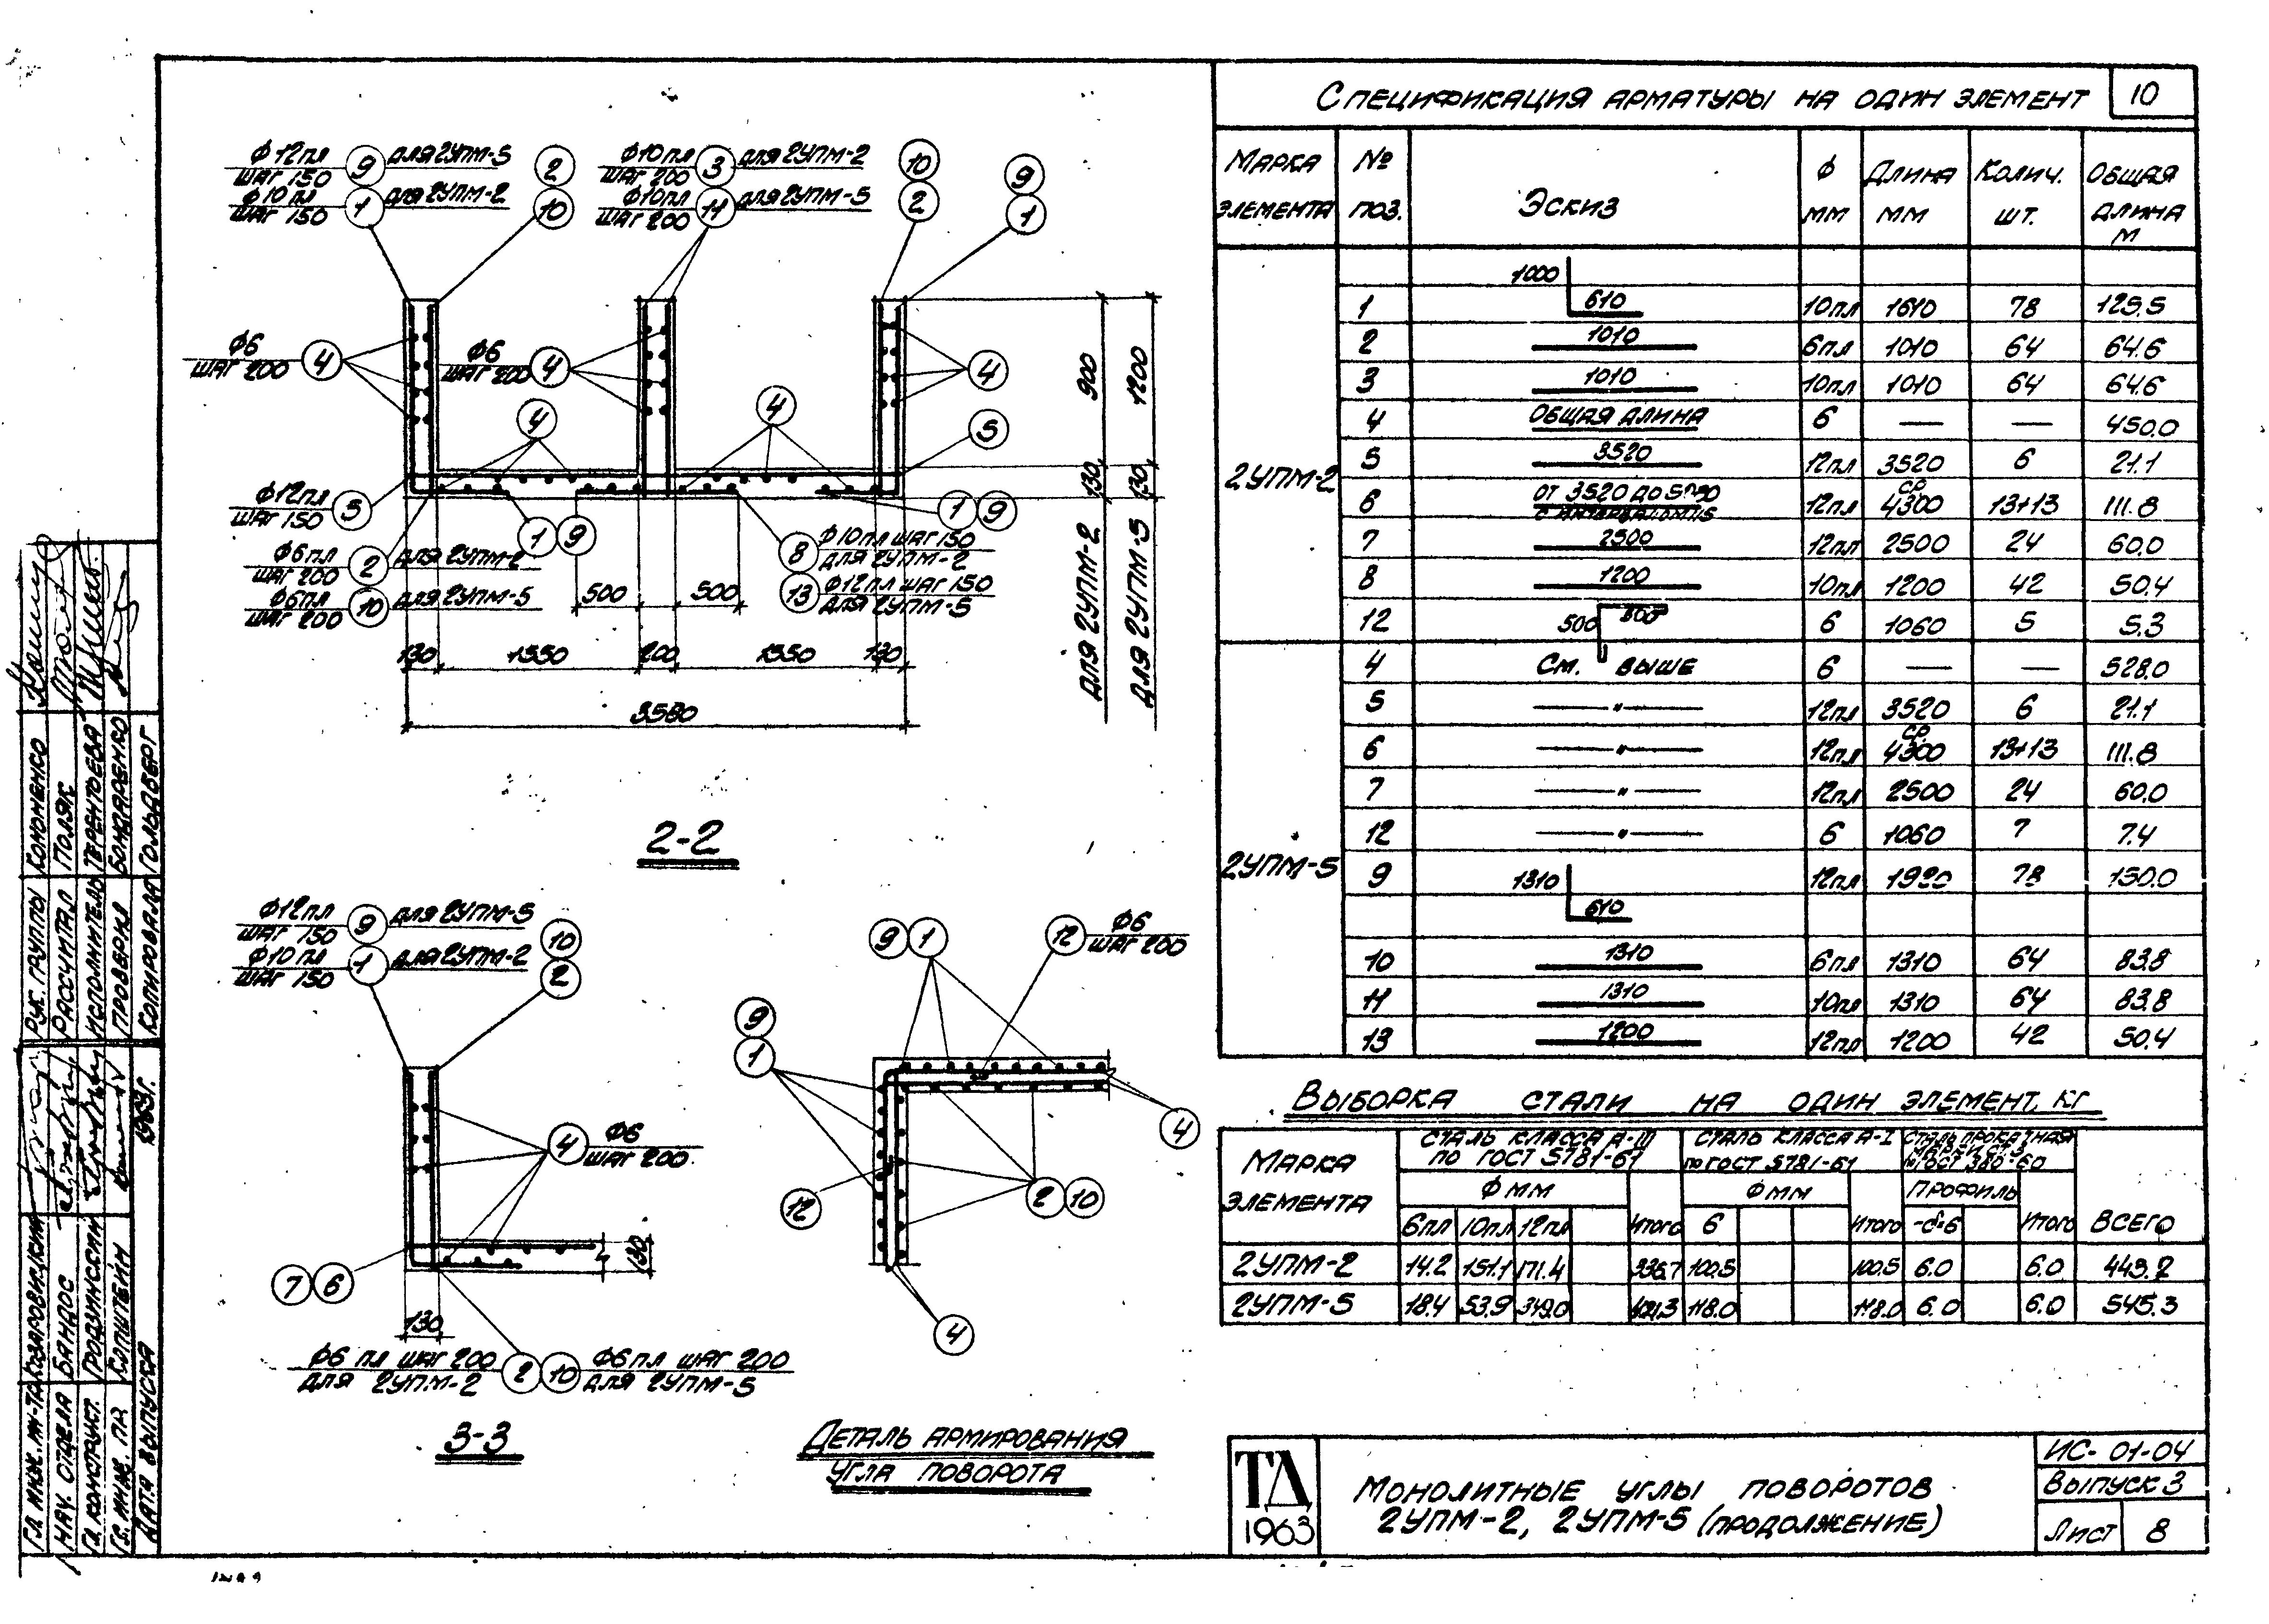 Спецификация арматуры на один элемент
10
Марка элемента
№ поз.
Эскиз
Ф мм
Длина мм
Колич. шт.
Общая длина м
2УПМ-2
1000
1 610 10пл 1610 78 125.5
2 1010 6пл 1010 64 64.6
3 1010 10пл 1010 64 64.6
4 Общая длина 6 — — 450.0
5 3520 12пл 3520 6 21.1
6 от 3520 до 12пл ср. 4300 13+13 111.8
7 2500 12пл 2500 24 60.0
8 1200 10пл 1200 42 50.4
12 500 6 1060 5 5.3
2УПМ-5
4 См. выше 6 — — 528.0
5 —"— 12пл 3520 6 21.1
6 —"— 12пл ср. 4300 13+13 111.8
7 —"— 12пл 2500 24 60.0
12 —"— 6 1060 7 7.4
9 1310 12пл 1920 78 150.0
610
10 1310 6пл 1310 64 83.8
11 1310 10пл 1310 64 83.8
13 1200 12пл 1200 42 50.4
Выборка стали на один элемент, кг
Марка элемента
Сталь класса А-III
по ГОСТ 5781-61
Сталь класса А-I
по ГОСТ 5781-61
Сталь прокатная
ГОСТ 380-60
Ф мм
Ф мм
Профиль
6пл 10пл 12пл Итого 6 Итого -δ=6 Итого Всего
2УПМ-2 14.2 151.1 171.4 336.7 100.5 100.5 6.0 6.0 443.2
2УПМ-5 18.4 53.9 349.0 421.3 118.0 118.0 6.0 6.0 545.3
Ф12пл шаг 150 9 для 2УПМ-5
Ф10пл шаг 150 1 для 2УПМ-2
2
10
Ф10пл шаг 200 3 для 2УПМ-2
Ф10пл шаг 200 11 для 2УПМ-5
10
2
9
1
Ф6 шаг 200 4
Ф6 шаг 200 4
4
4
4
5
Ф12пл шаг 150 5
1 9
1 9
Ф6пл шаг 200 2 для 2УПМ-2
Ф6пл шаг 200 10 для 2УПМ-5
8 Ф10пл шаг 150 для 2УПМ-2
13 Ф12пл шаг 150 для 2УПМ-5
500
500
130 1550 200 1550 130
3580
900
130
для 2УПМ-2
1200
130
для 2УПМ-5
2-2
Ф12пл шаг 150 9 для 2УПМ-5
Ф10пл шаг 150 1 для 2УПМ-2
10
2
4 Ф6 шаг 200
7 6
130
130
Ф6пл шаг 200 для 2УПМ-2 2
10 Ф6пл шаг 200 для 2УПМ-5
3-3
9 1
12 Ф6 шаг 200
9
1
4
2 10
12
4
Деталь армирования
угла поворота
ТД
1963
Монолитные углы поворотов
2УПМ-2, 2УПМ-5 (продолжение)
ИС-01-04
Выпуск 3
Лист 8
Рук. группы Кононенко
Рассчитал Поляк
Исполнитель Терентьева
Проверил Бондаренко
Копировала Гольдберг
Нач. отдела Бандос
Гл. конструкт. Гродзинский
Гл. инж. пр. Копштейн
Дата выпуска 1963г.